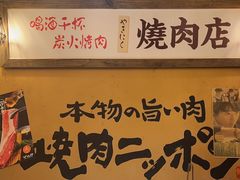 喝酒干杯
炭火烤肉
やきにく
燒肉店
本物の旨い肉
焼肉ニッポン